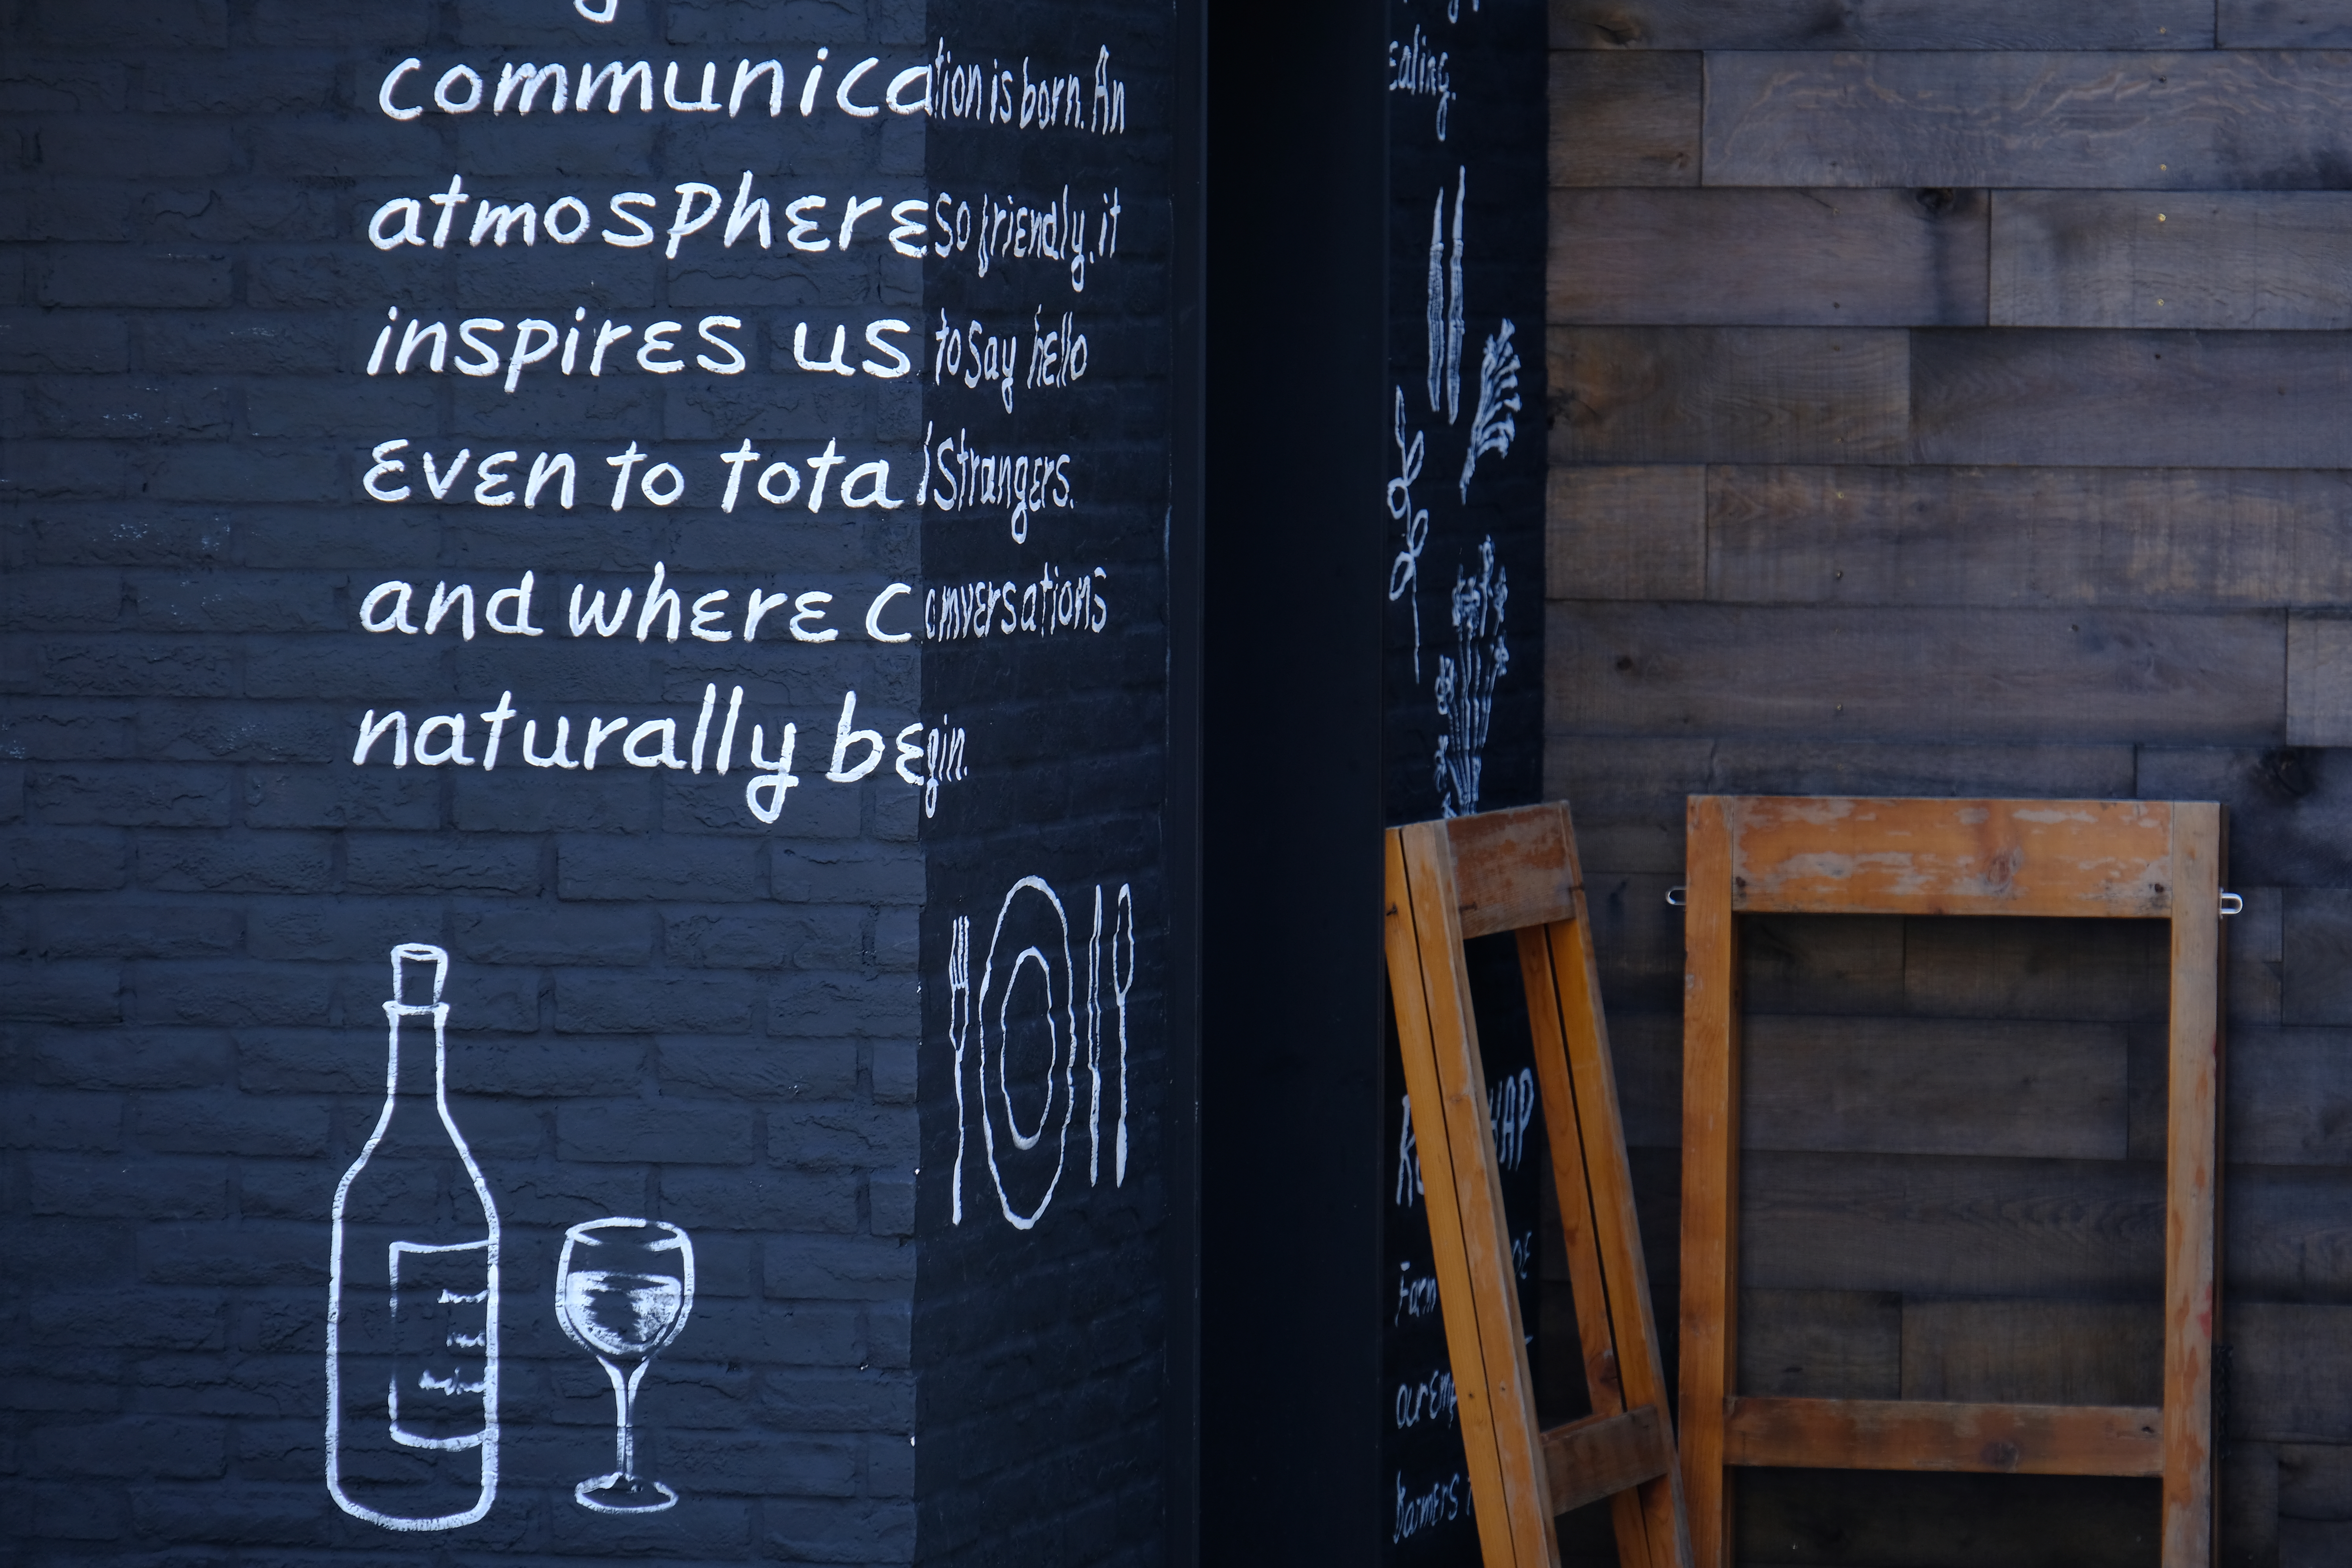 communication is born. An
atmosphere so friendly, it
inspires us to say hello
even to total strangers.
and where conversations
naturally begin.
eating.
Farm
our
Farmers